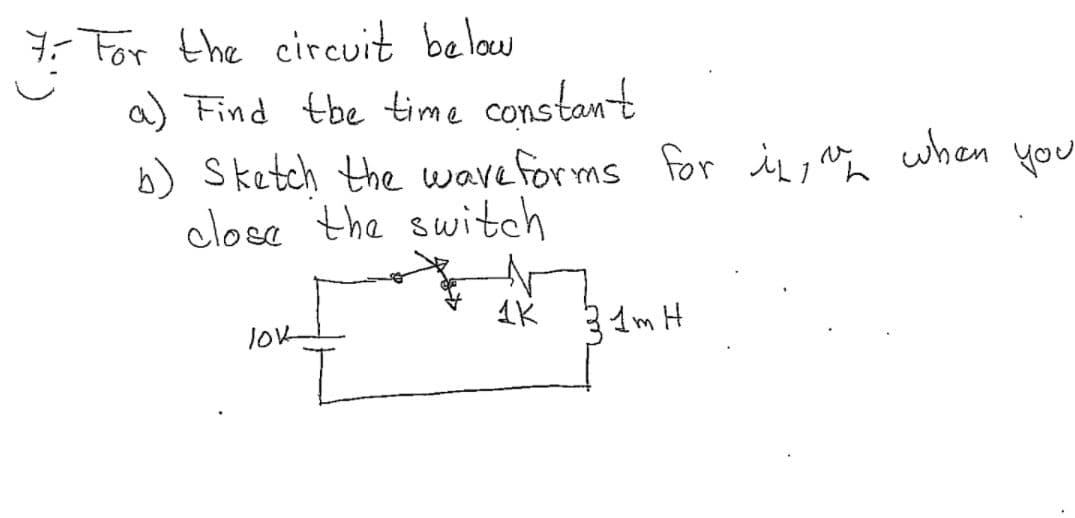 7:- For the circuit below
a) Find the time constant
b) Sketch the waveforms for iL, vL when you
close the switch
1K
10V
1mH